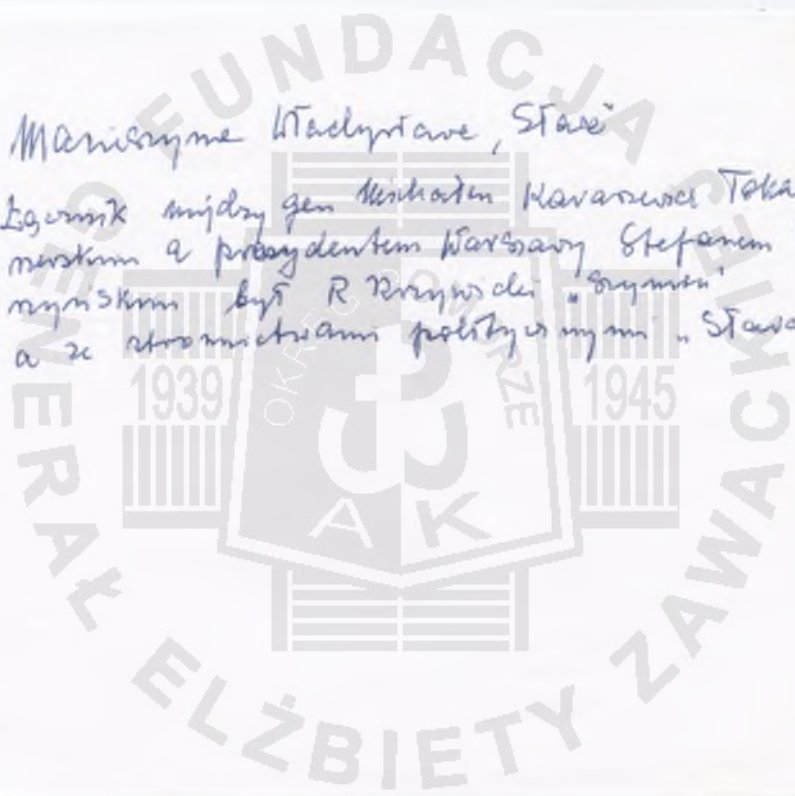 Macieszyna Władysława, "Sława"
Łącznik między gen Michałem Karaszewicz Toka
rzewskim a prezydentem Warszawy Stefanem
rzyńskim był R Krzywicki "Szymon"
a ze stronnictwami politycznymi "Sława
FUNDACJA
GENERAŁ ELŻBIETY ZAWACKIEJ
OKRĘG POMORZE
1939 1945
AK